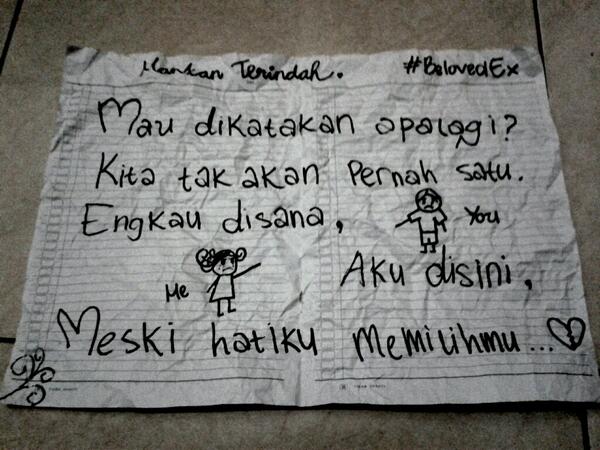 Mantan Terindah. #BelovedEx
Mau dikatakan apalagi?
Kita tak akan Pernah satu.
Engkau disana,
You
Me
Aku disini,
Meski hatiku Memilihmu...